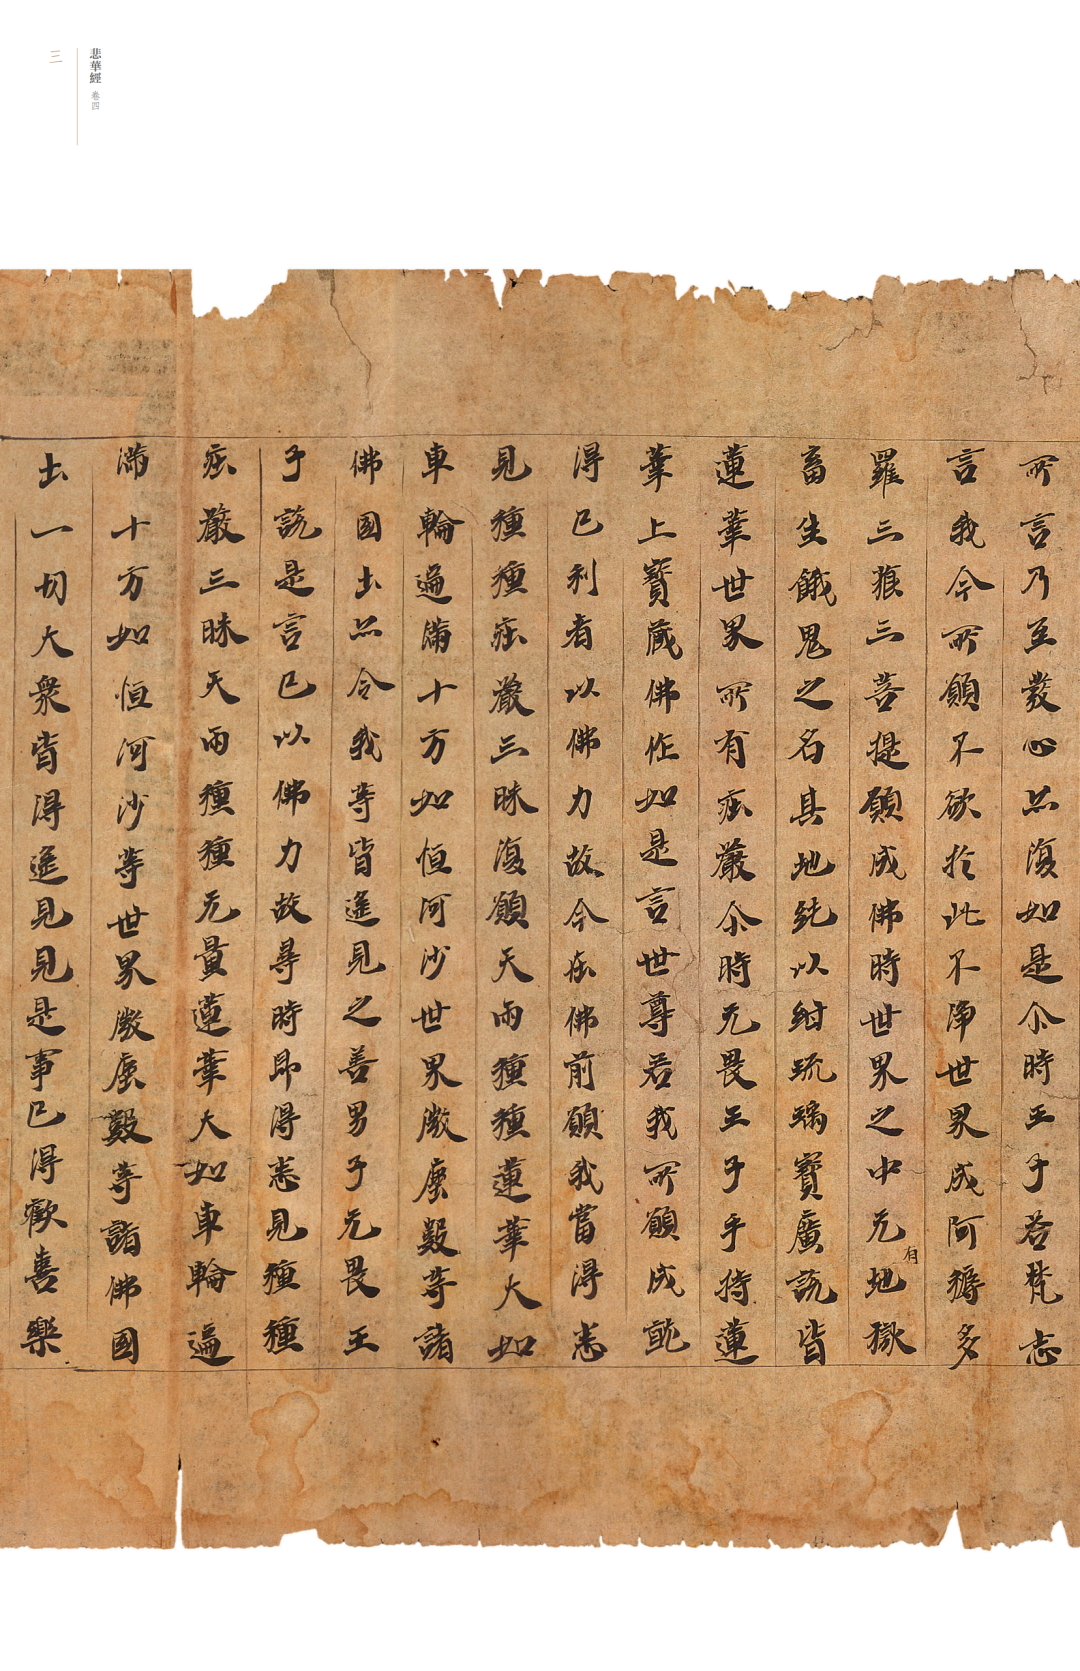 悲華經 卷四
三
所言乃至發心亦復如是尒時王子若梵志
言我今所願不欲於此不淨世界成阿耨多
羅三藐三菩提願成佛時世界之中无有地獄
畜生餓鬼之名其地純以紺琉璃寶廣說皆
蓮華世界所有莊嚴尒時无畏王子手持蓮
華上寶藏佛作如是言世尊若我所願成就
得已利者以佛力故今在佛前願我當得悉
見種種莊嚴三昧復願天雨種種蓮華大如
車輪遍滿十方如恒河沙世界微塵數等諸
佛國土亦令我等皆遙見之善男子无畏王
子說是言已以佛力故尋時即得悉見種種
莊嚴三昧天雨種種无量蓮華大如車輪遍
滿十方如恒河沙等世界微塵數等諸佛國
土一切大眾皆得遙見見是事已得歡喜樂